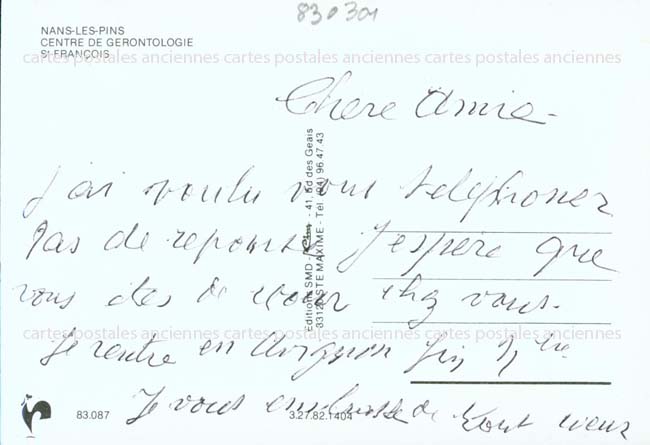 830301
NANS-LES-PINS
CENTRE DE GERONTOLOGIE
St FRANÇOIS
cartes postales anciennes cartes postales anciennes cartes postales anciennes
Chere Amie -
J'ai voulu vous telephoner
Pas de reponse J'espère que
vous etes de retour chez vous.
cartes postales anciennes cartes postales anciennes cartes postales anciennes
Je rentre en Avignon fin
Je vous embrasse de tout coeur
Editions SMD - 41, Bd des Geais
83120 STE MAXIME - Tél. (94) 96.47.43
83.087
3.27.82.1404